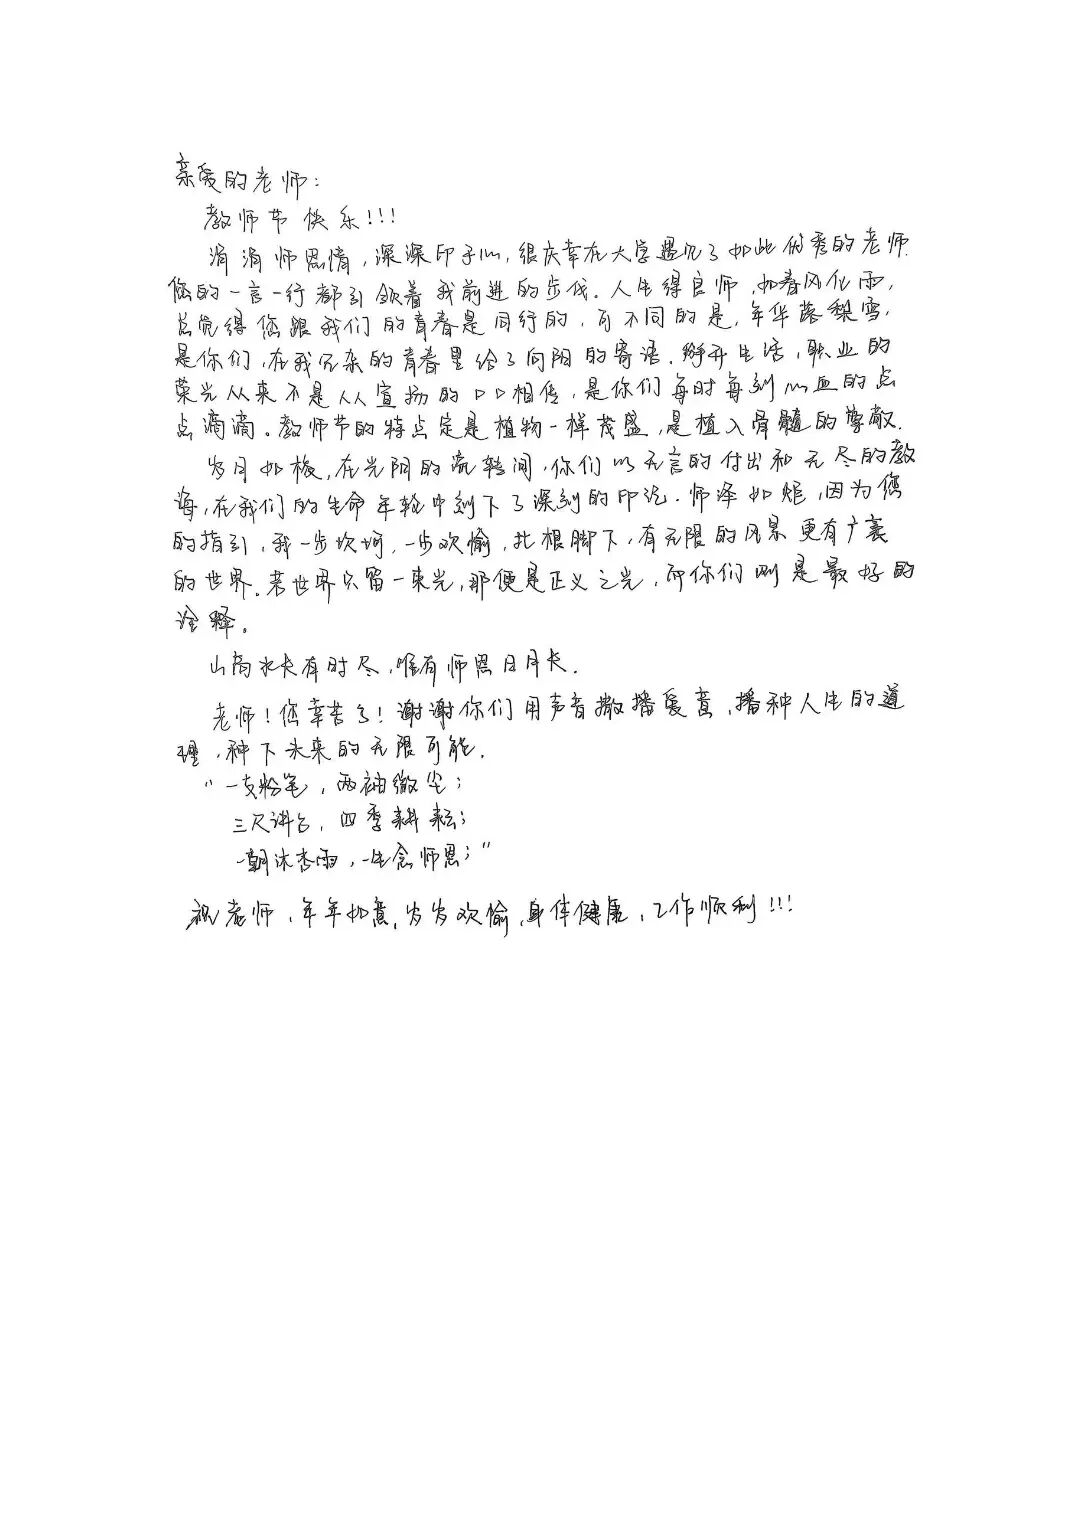 亲爱的老师:
教师节快乐!!!
涓涓师恩情,深深印于心,很庆幸在大学遇见了如此优秀的老师.
您的一言一行都引领着我前进的步伐.人生得良师,如春风化雨,
总觉得您跟我们的青春是同行的,可不同的是,年华落梨雪,
是你们,在我冗杂的青春里给了向阳的寄语.掰开生活,职业的
荣光从来不是人人宣扬的口口相传,是你们每时每刻心血的点
点滴滴。教师节的特点定是植物一样茂盛,是植入骨髓的尊敬.
岁月如梭,在光阴的流转间,你们以无言的付出和无尽的教
诲,在我们的生命年轮中刻下了深刻的印记.师泽如炬,因为您
的指引,我一步坎坷,一步欢愉,扎根脚下,有无限的风景更有广袤
的世界.若世界只留一束光,那便是正义之光,而你们则是最好的
诠释。
山高水长有时尽,唯有师恩日月长.
老师!您辛苦了!谢谢你们用声音撒播爱意,播种人生的道
理,种下未来的无限可能.
"一支粉笔,两袖微尘;
三尺讲台,四季耕耘;
一朝沐杏雨,一生念师恩;"
祝老师,年年如意,岁岁欢愉,身体健康,工作顺利!!!